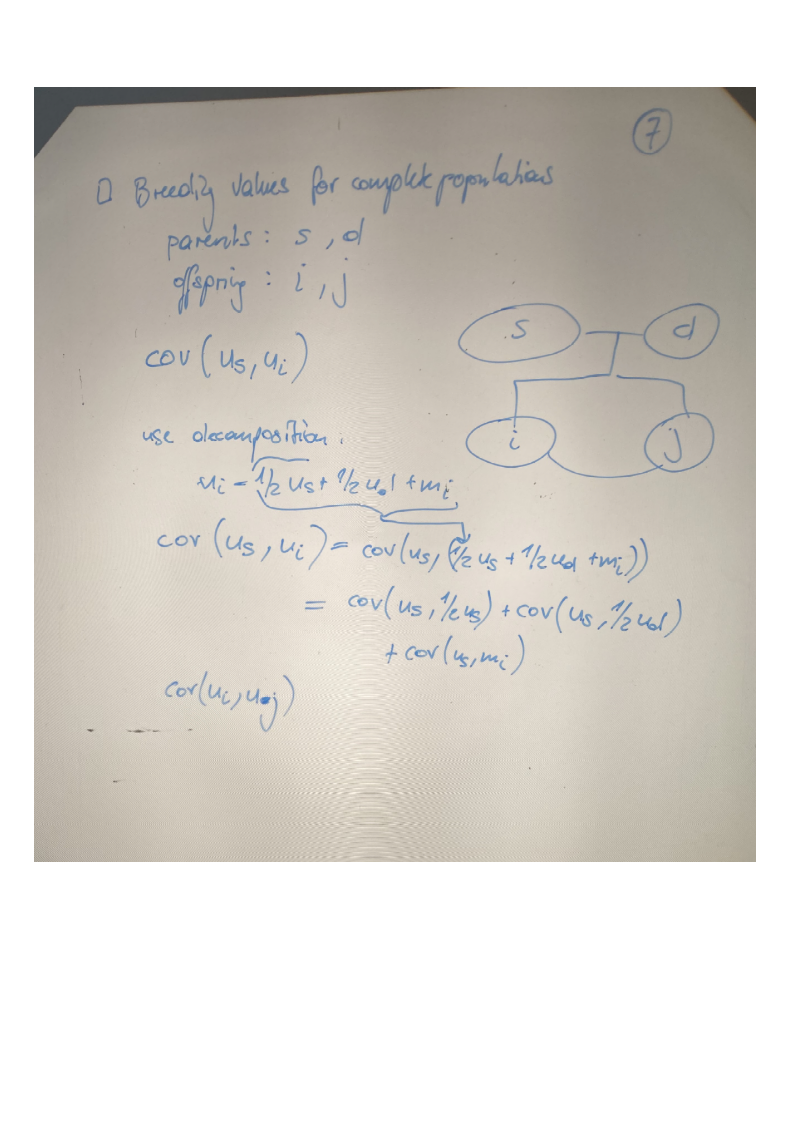 7
□ Breeding values for complete populations
parents : s , d
offspring : i , j
cov(us, ui)
s d
use decomposition .
i j
ui = 1/2 us + 1/2 ud + mi
cov(us, ui) = cov(us, (1/2 us + 1/2 ud + mi))
= cov(us, 1/2 us) + cov(us, 1/2 ud)
+ cov(us, mi)
cov(ui, uj)